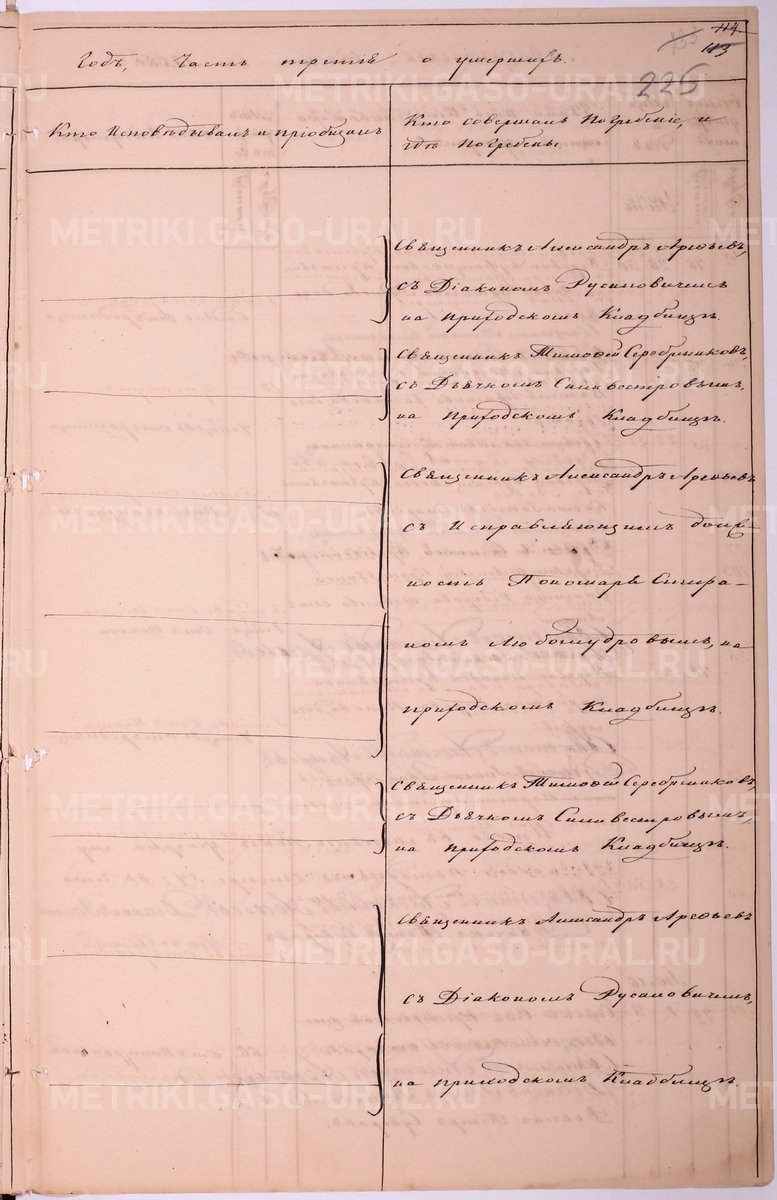 114
113
225
Годъ, Часть третія о умершихъ.
Кто Исповѣдывалъ и пріобщалъ
Кто совершалъ Погребеніе, и
гдѣ Погребены.
Священникъ Александръ Арефьевъ,
съ Діакономъ Русановичемъ
на Приходскомъ Кладбищѣ.
Священникъ Тимофей Серебрениковъ,
съ Дьячкомъ Сильвестровымъ,
на Приходскомъ Кладбищѣ.
Священникъ Александръ Арефьевъ
съ Исправляющимъ долж
ность Пономаря
номъ Любомудровымъ, на
приходскомъ Кладбищѣ.
Священникъ Тимофей Серебрениковъ,
съ Дьячкомъ Сильвестровымъ,
на приходскомъ Кладбищѣ.
Священникъ Александръ Арефьевъ
съ Діакономъ Русановичемъ,
на приходскомъ Кладбищѣ.
METRIKI.GASO-URAL.RU